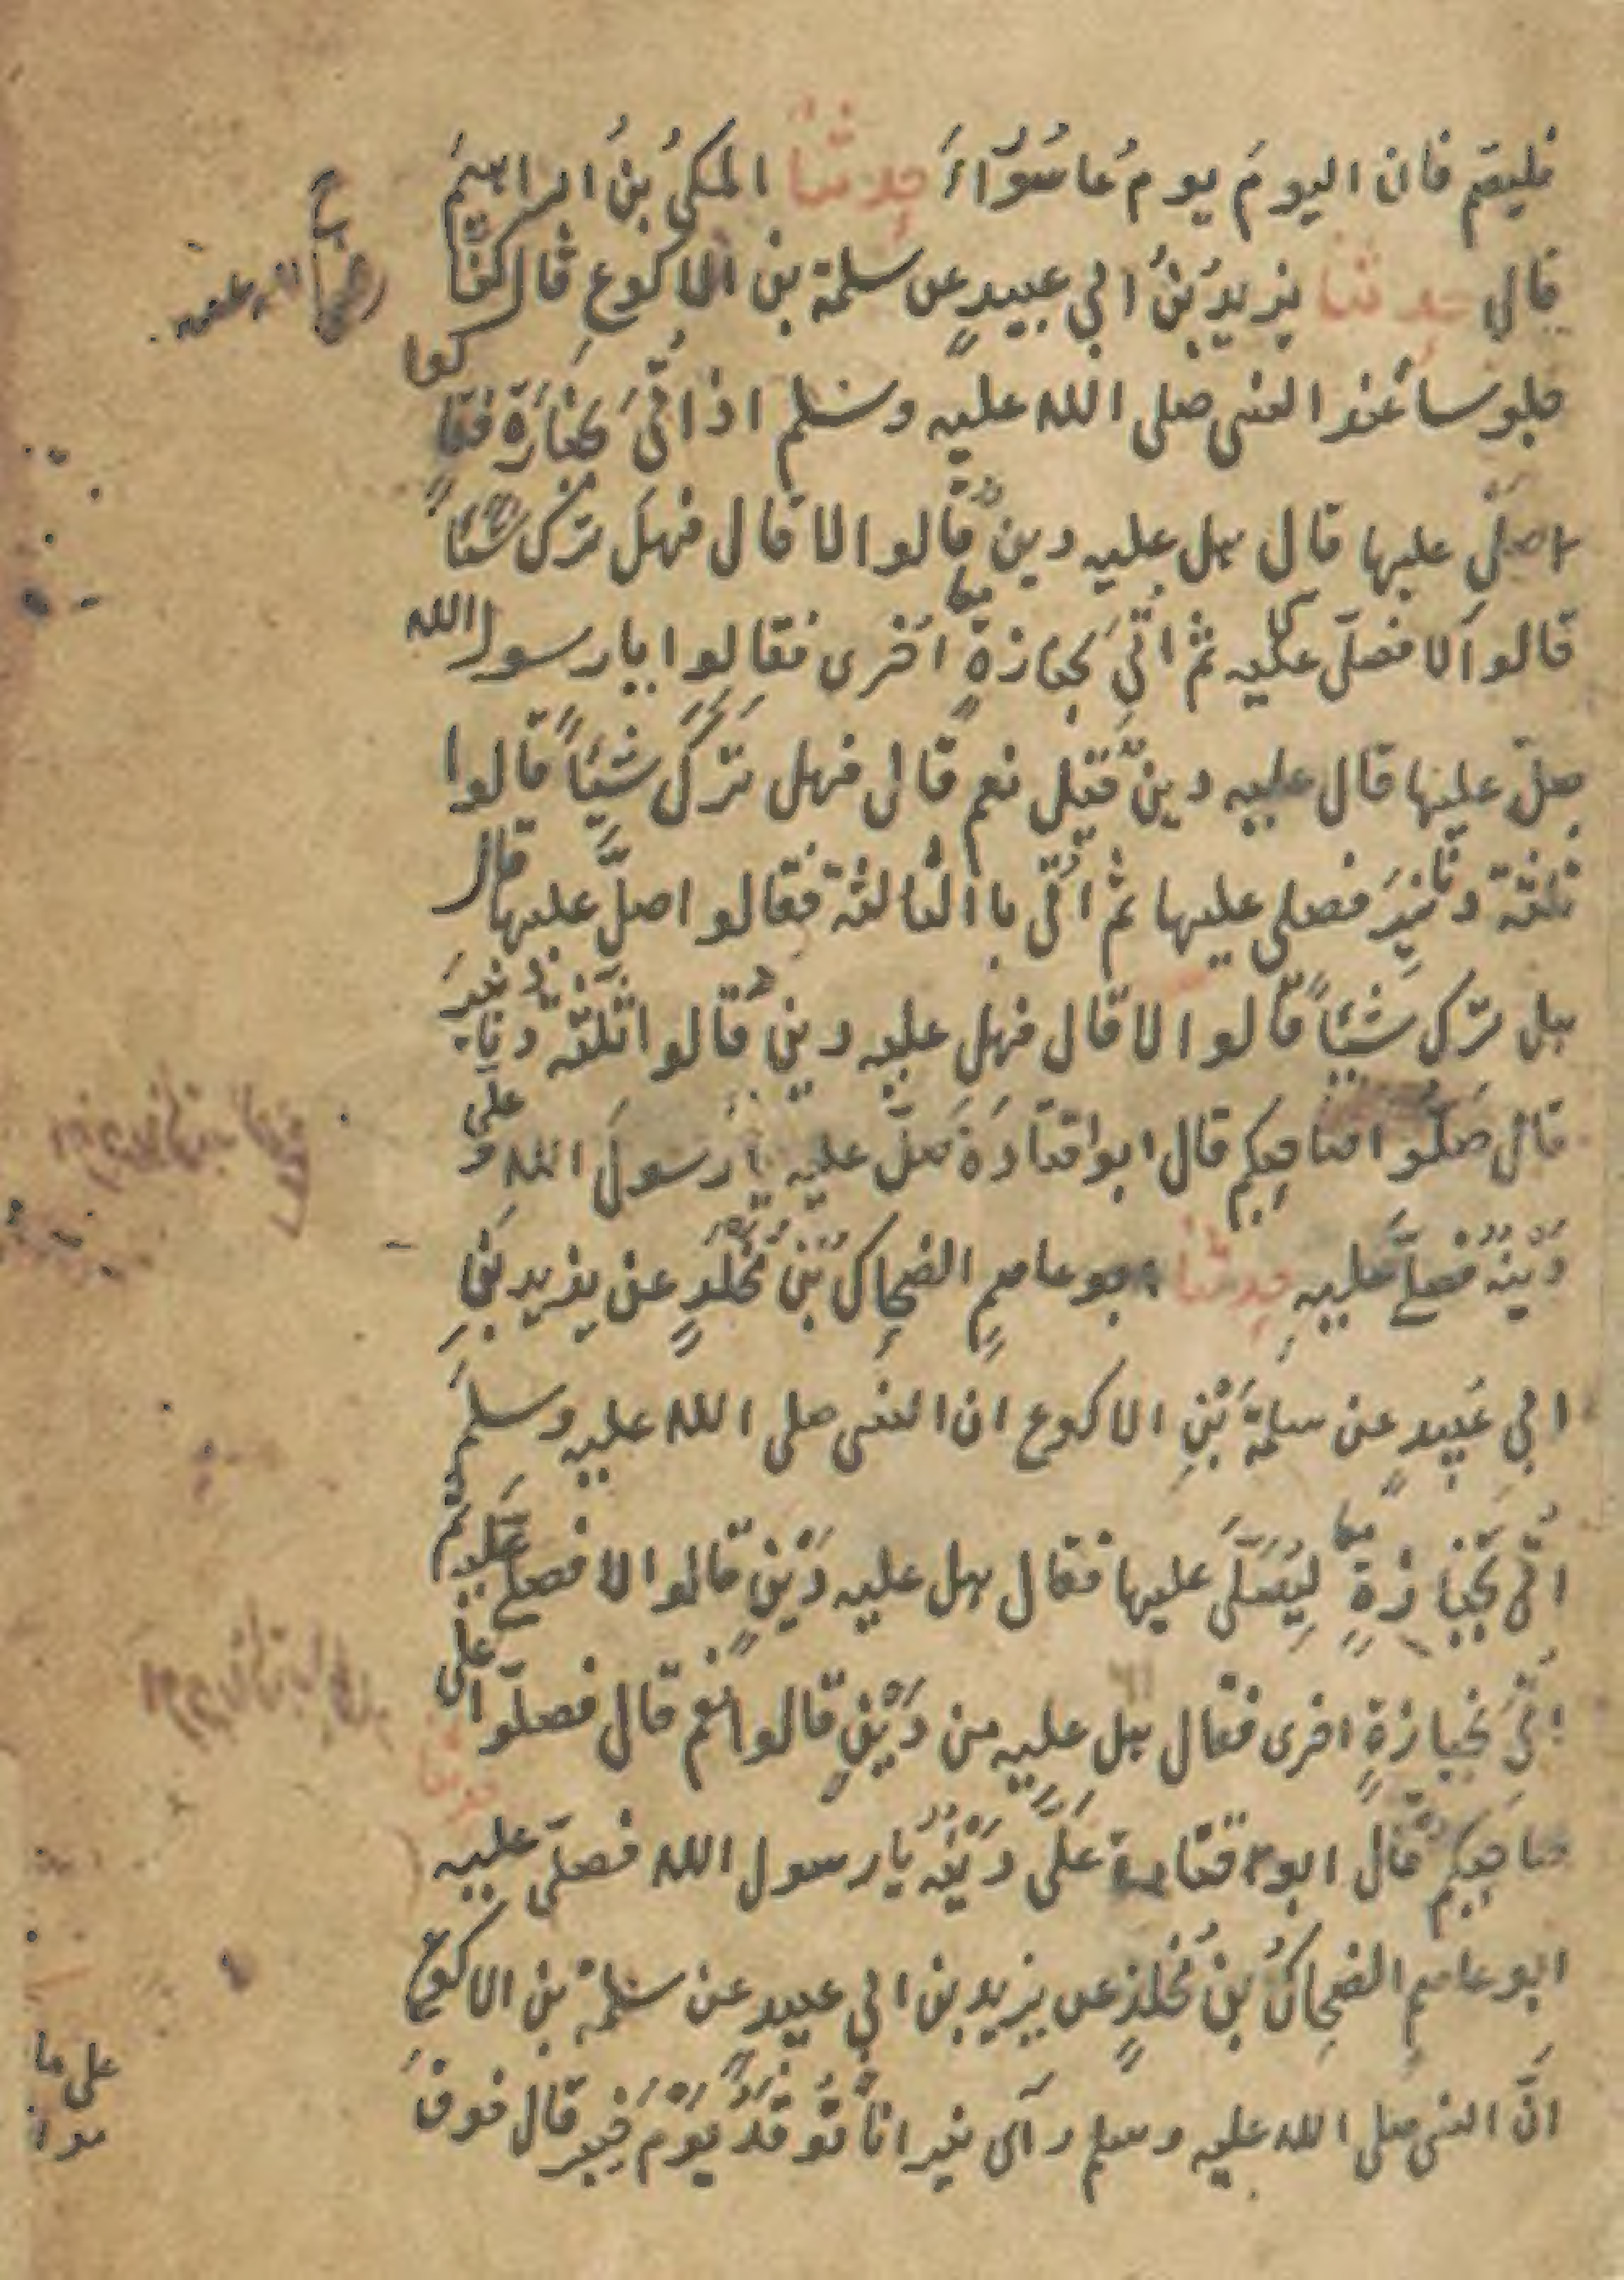 فليصم فان اليومَ يومُ عاشوراءَ حدثنا المكيُ بنُ ابراهيمَ
قال حدثنا يزيدُ بنُ ابي عبيدٍ عن سلمة بن الاكوعِ قال كنّا
جلوسا عند النبى صلى الله عليه وسلم اذ اُتىَ بجنازة فقالوا
صلّ عليها قال هل عليه دين قالوا لا قال فهل ترك شيئاً
قالوا لا فصلّى عليه ثم اُتىَ بجنازةٍ اُخرى فقالوا يا رسول الله
صلّ عليها قال عليه دينٌ قيل نعم قال فهل تركَ شيئاً قالوا
ثلثة دنانيرَ فصلى عليها ثم اُتى باالثالثة فقالوا صلّ عليها قال
هل ترك شيئاً قالوا لا قال فهل عليه دين قالوا ثلثة دنانيرَ
قال صلّوا على صاحبكم قال ابو اقتادَةَ صلّ عليه يا رسولَ الله و علي
دَينُه فصلّى عليهِ حدثنا ابو عاصمٍ الضحاك بنُ مخلدٍ عن يزيد بنِ
ابي عُبيدٍ عن سلمةَ بنِ الاكوع ان النبى صلى الله عليه وسلمَ
اُتى بجنازةٍ ليُصلّىَ عليها فقال هل عليه دَينٍ قالوا لا فصلى عليه ثم
اُتىَ بجنازةٍ اخرى فقال هل عليه من دَينٍ قالوا نعم قال فصلّوا على
صاحبكم قال ابو قتادة علَىَّ دَينُه يا رسول الله فصلّى عليه حدثنا
ابو عاصمٍ الضحاكُ بنُ مخلدٍ عن يزيد بن ابي عبيدٍ عن سلمة بن الاكوع
انَّ النبى صلى الله عليه وسلم رآى نيرانا تُوقدُ يومَ خيبر قال فوقَ
على ما